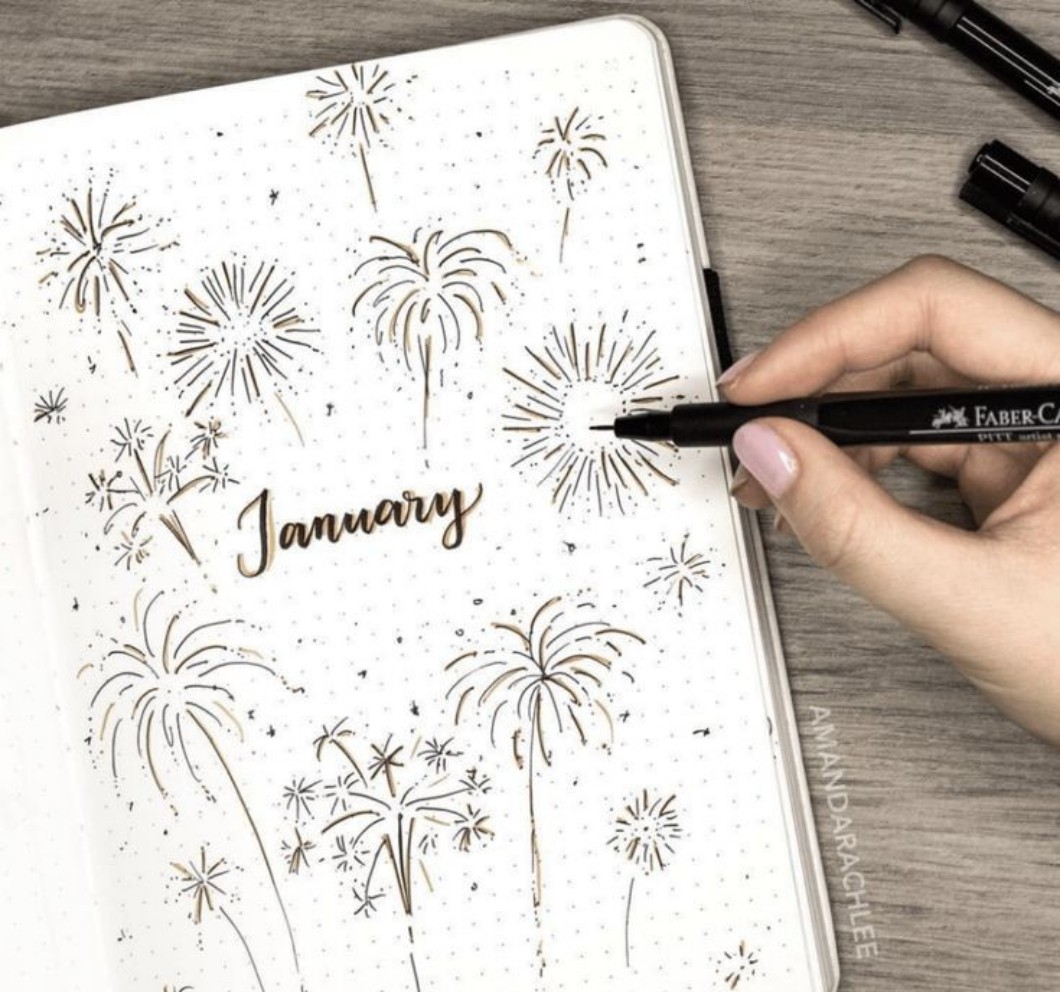 January
FABER-CA
PITT artist
AMANDARACHLEE